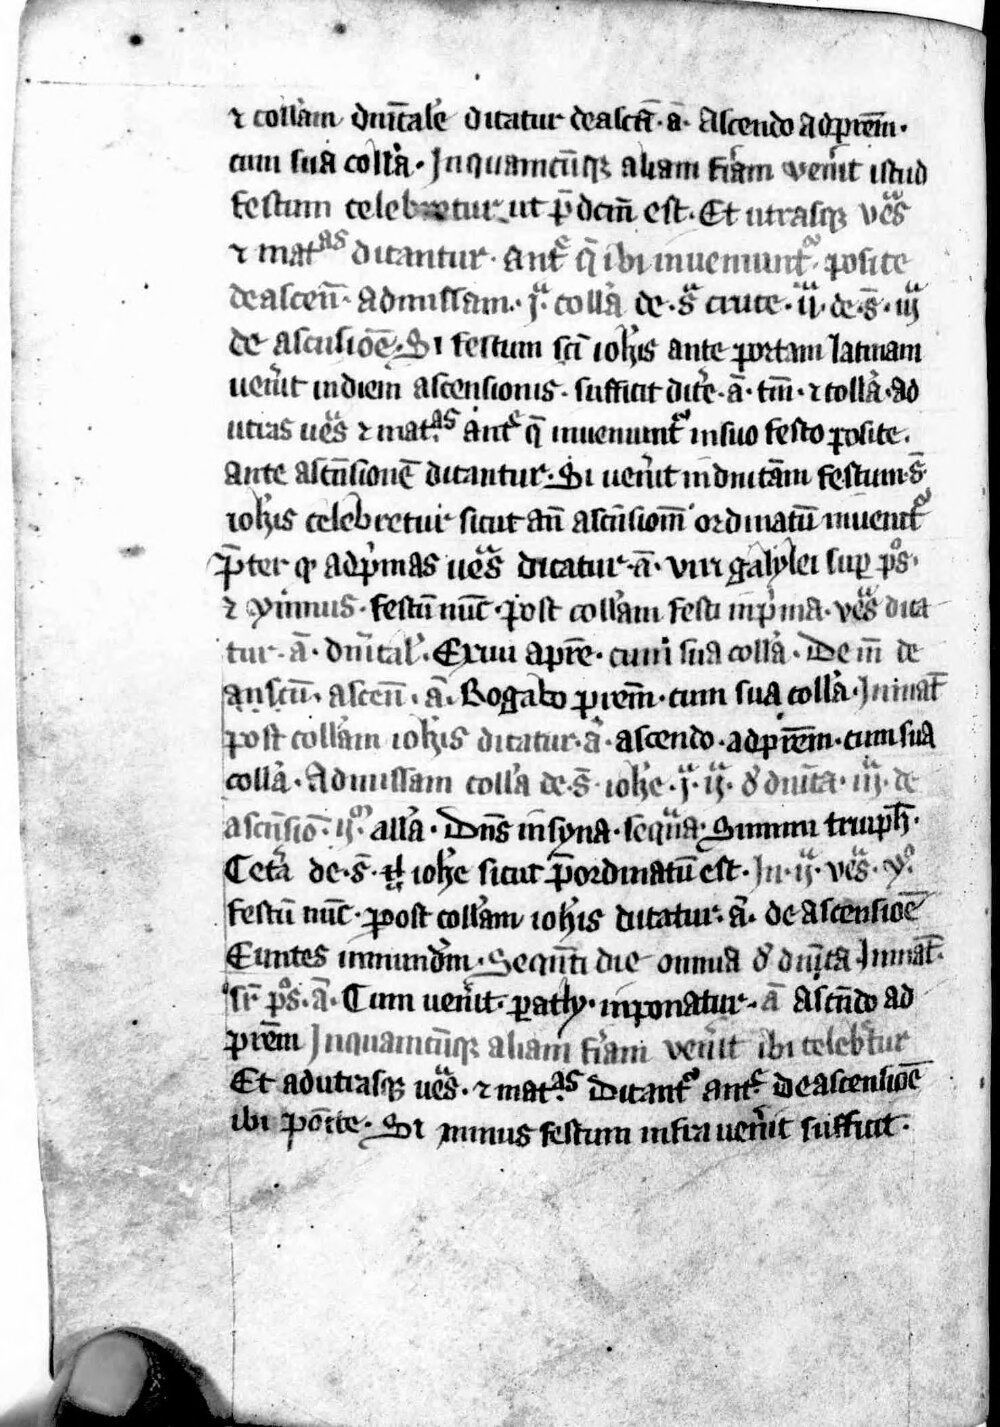 ⁊ coll'am dnīcale dicatur de ascā. ā. Ascendo ad prem̄.
cum sua coll'a. In quamcūq; aliam fr̄iam ven'it istud
festum celebretur ut p̄dcm̄ est. Et utrasq; vēs
⁊ mat^as dicantur. ant̄ q̄ ibi inueniunt^r posite
de ascen̄. Ad missam. j^a. coll'a de. s^a cruce. ij^a. de. s̄. iij^a
de ascēsiōe. Si festum sc̄i ioh'is ante portam latinam
uen'it in diem ascensionis. sufficit dic'e. ā. tm̄. ⁊ coll'a. ad
utras uēs ⁊ mat^as ant̄ q̄ inueniunt^r in suo festo posite.
ante ascēsionē dicantur. Si uen'it in dnicām festum. s̄
ioh'is celebretur sicut an̄ ascēsiom̄ ordinatū inuenit^r
p̄ter q' ad p'mas uēs dicatur. ā. viri galylei sup p^os.
⁊ ymnus. festū nūc. post coll'am festi in p'ma. vēs dica
tur. ā. dnīcal'. Exiui a pr̄e. cum sua coll'a. De m̄ de
ascen̄. ā. Rogabo prem̄. cum sua coll'a. In mat̄
post coll'am ioh'is dicatur. ā. ascendo. ad prem̄. cum sua
coll'a. Ad missam coll'a de. s̄. ioh'e. j^a. ij^a. d' dnīca. iij^a. de
ascēsiō. ij^m. all'a. Dn̄s in syna. sequ^a. Summi triuph̄.
Cet'a de. s̄. ioh'e sicut p̄ordinatū est. In. ij^a. vēs. y^o.
festū nūc. post coll'am ioh'is dicatur. ā. de ascensiōe
Euntes in mund'm. Sequn̄ti die omnia d' dnīca. In mat̄.
sr̄ p^os. ā. Cum uen'it. pacly. inponatur. ā Ascēdo ad
prem̄ In quamcūq; aliam fr̄iam ven'it ibi celeb'tur
Et ad utrasq; uēs. ⁊ mat^as dicant^r ant̄. de ascensiōe
ibi pōite. Si minus festum infra uen'it sufficit.